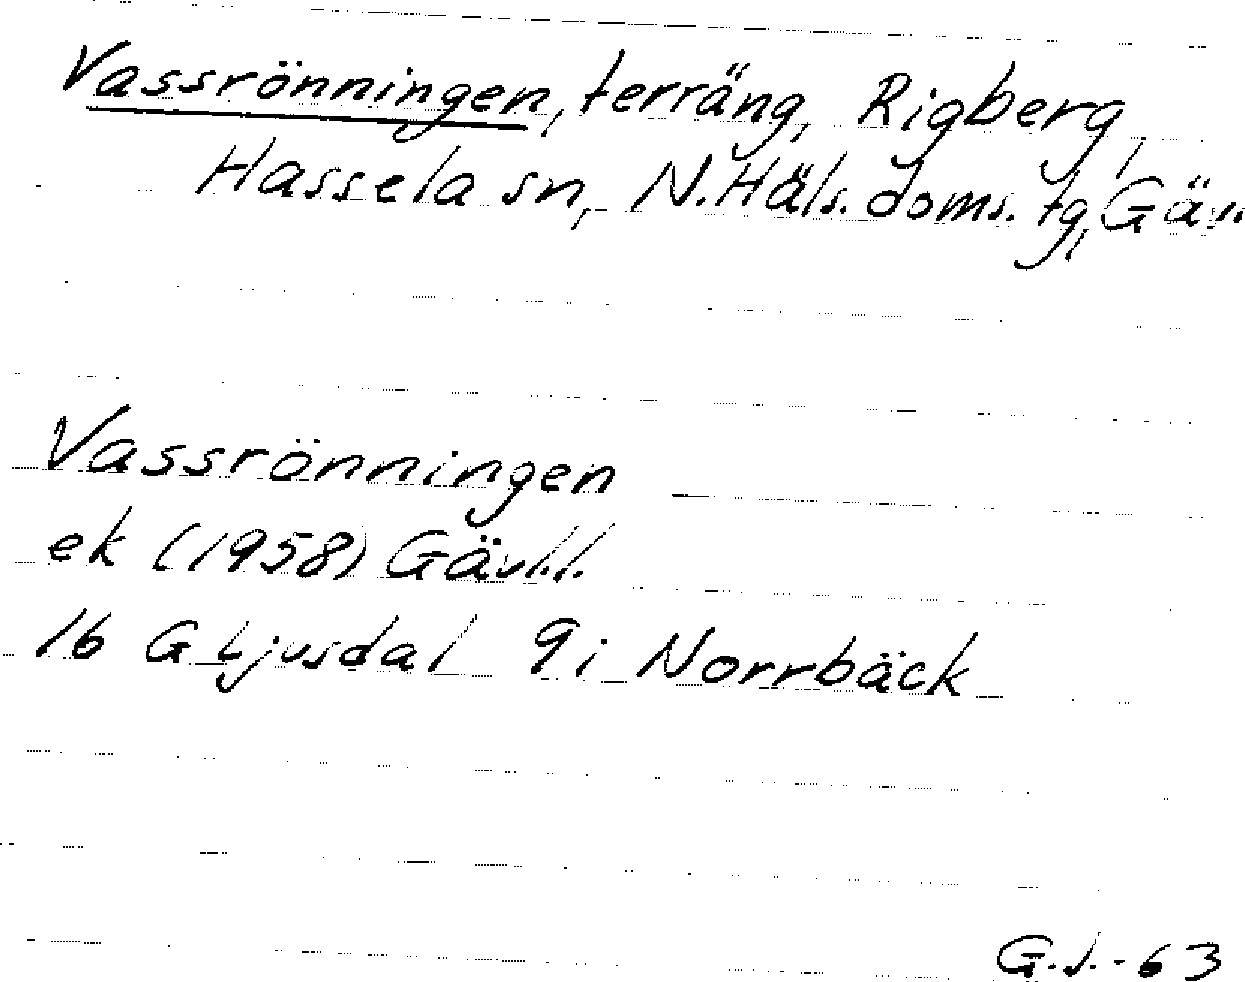 Vassrönningen, terräng, Rigberg,
Hassela sn, N. Häls. doms. tg, Gäv.
Vassrönningen
ek (1958) Gävl.l.
16 G Ljusdal 9i Norrbäck
G.J.-63